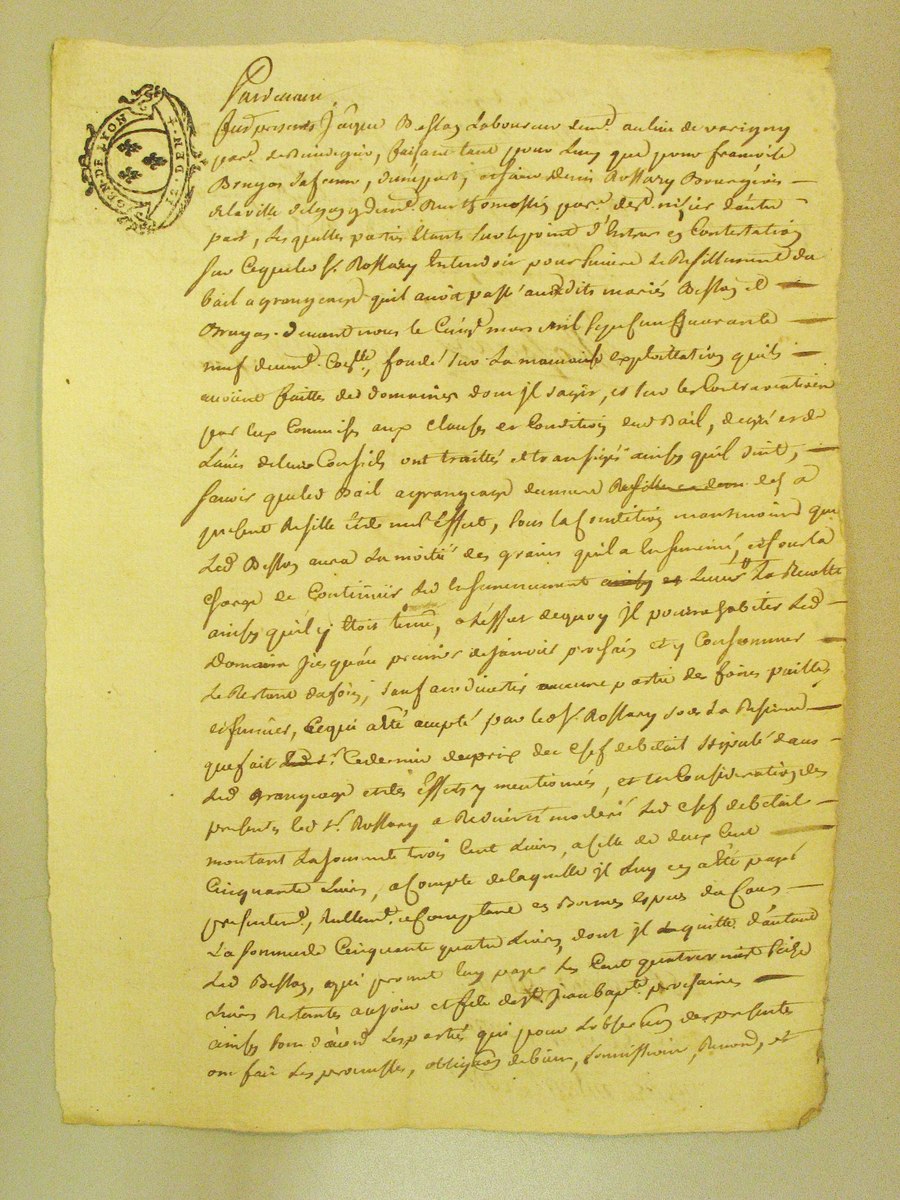 GEN. DE LYON
Pardevant
furent presents Jacque Bessay Laboureur demt. au lieu de varigny
parr. de , faisant tant pour luy que pour françoise
Bruyas sa femme, d'une part, et sieur denis Rossary Bourgeois
de la ville de Lyon y demt. Rue thomassin parr. de st. nizier d'autre
part, Lesquelles parties Etants sur le point d'Entrer en Contestation
sur ce que led. Sr. Rossary Entendoit poursuivre le Resilliement du
bail a grangeage qu'il avoit passé auxdits mariés Bessay et
Bruyas devant nous le Cinq mars mil sept cent quarante
neuf , fondé sur la mauvaise exploitation qu'ils
avoient faittes des domaines dont jl s'agit, et sur les Contraventions
par Eux Commises aux clauses et Conditions dud. Bail, de gré et de
l'avis de leurs Conseils ont traittés et transigés ainsy qu'il suit,
savoir que led. Bail a grangeage demeure des a
present Resillé et de nul Effect, sous la Condition neantmoins que
Led. Bessay aura la moitié des grains qu'il a Ensemencé, et sous la
charge de Continuer led. Ensemencement la Recolte
ainsy qu'il y Etoit tenu, a l'effet de quoy jl pourra habiter led.
Domaine jusqu'au premier de janvier prochain et y Consommer
le Restant du foin, sans divertir aucune partie des foins pailles
et fumiers, ce qui a été accepté par led. Sr. Rossary sous la Reserve
que fait ce dernier du prix du chef de betail stipulé dans
Led. grangeage et des Effets y mentionnés, et en Consideration des
presentes led. Sr. Rossary a Reduit et moderé led. chef de betail
montant la somme de trois Cent Livres, a celle de deux Cent
Cinquante Livres, a Compte de laquelle jl luy en a été payé
presentement, Reellemt. et Comptant en Bonnes especes du Cours
La somme de Cinquante quatre Livres, dont jl quitte d'autant
Led. Bessay, qui promet luy payer les Cent quatre vingt seize
Livres Restantes au jour et fête de st. jean bapt. prochaine
ainsy Convenu d'accord Les parties qui pour l'observation des presentes
ont fait les promesses, obligations de biens, soumissions, Renonc. et